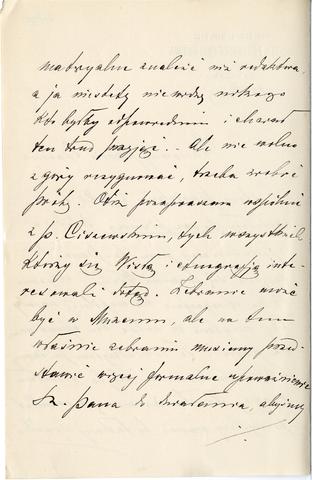 materyalne znaleść niż redaktora,
a ja niestety nie widzę nikogo
kto byłby odpowiednim i chciał
ten trud przyjąć.. Ale nie wolno
z góry rezygnować, trzeba zrobić
próbę. Otóż zapraszam wspólnie
z p. Ciszewskim, tych wszystkich
którzy się Wisłą i etnografją inte-
resowali dotąd. Zebranie może
być w Muzeum, ale na tem
właśnie zebraniu musimy przed-
stawić więcej formalne upoważnienie
Sz. Pana do działania, abyśmy